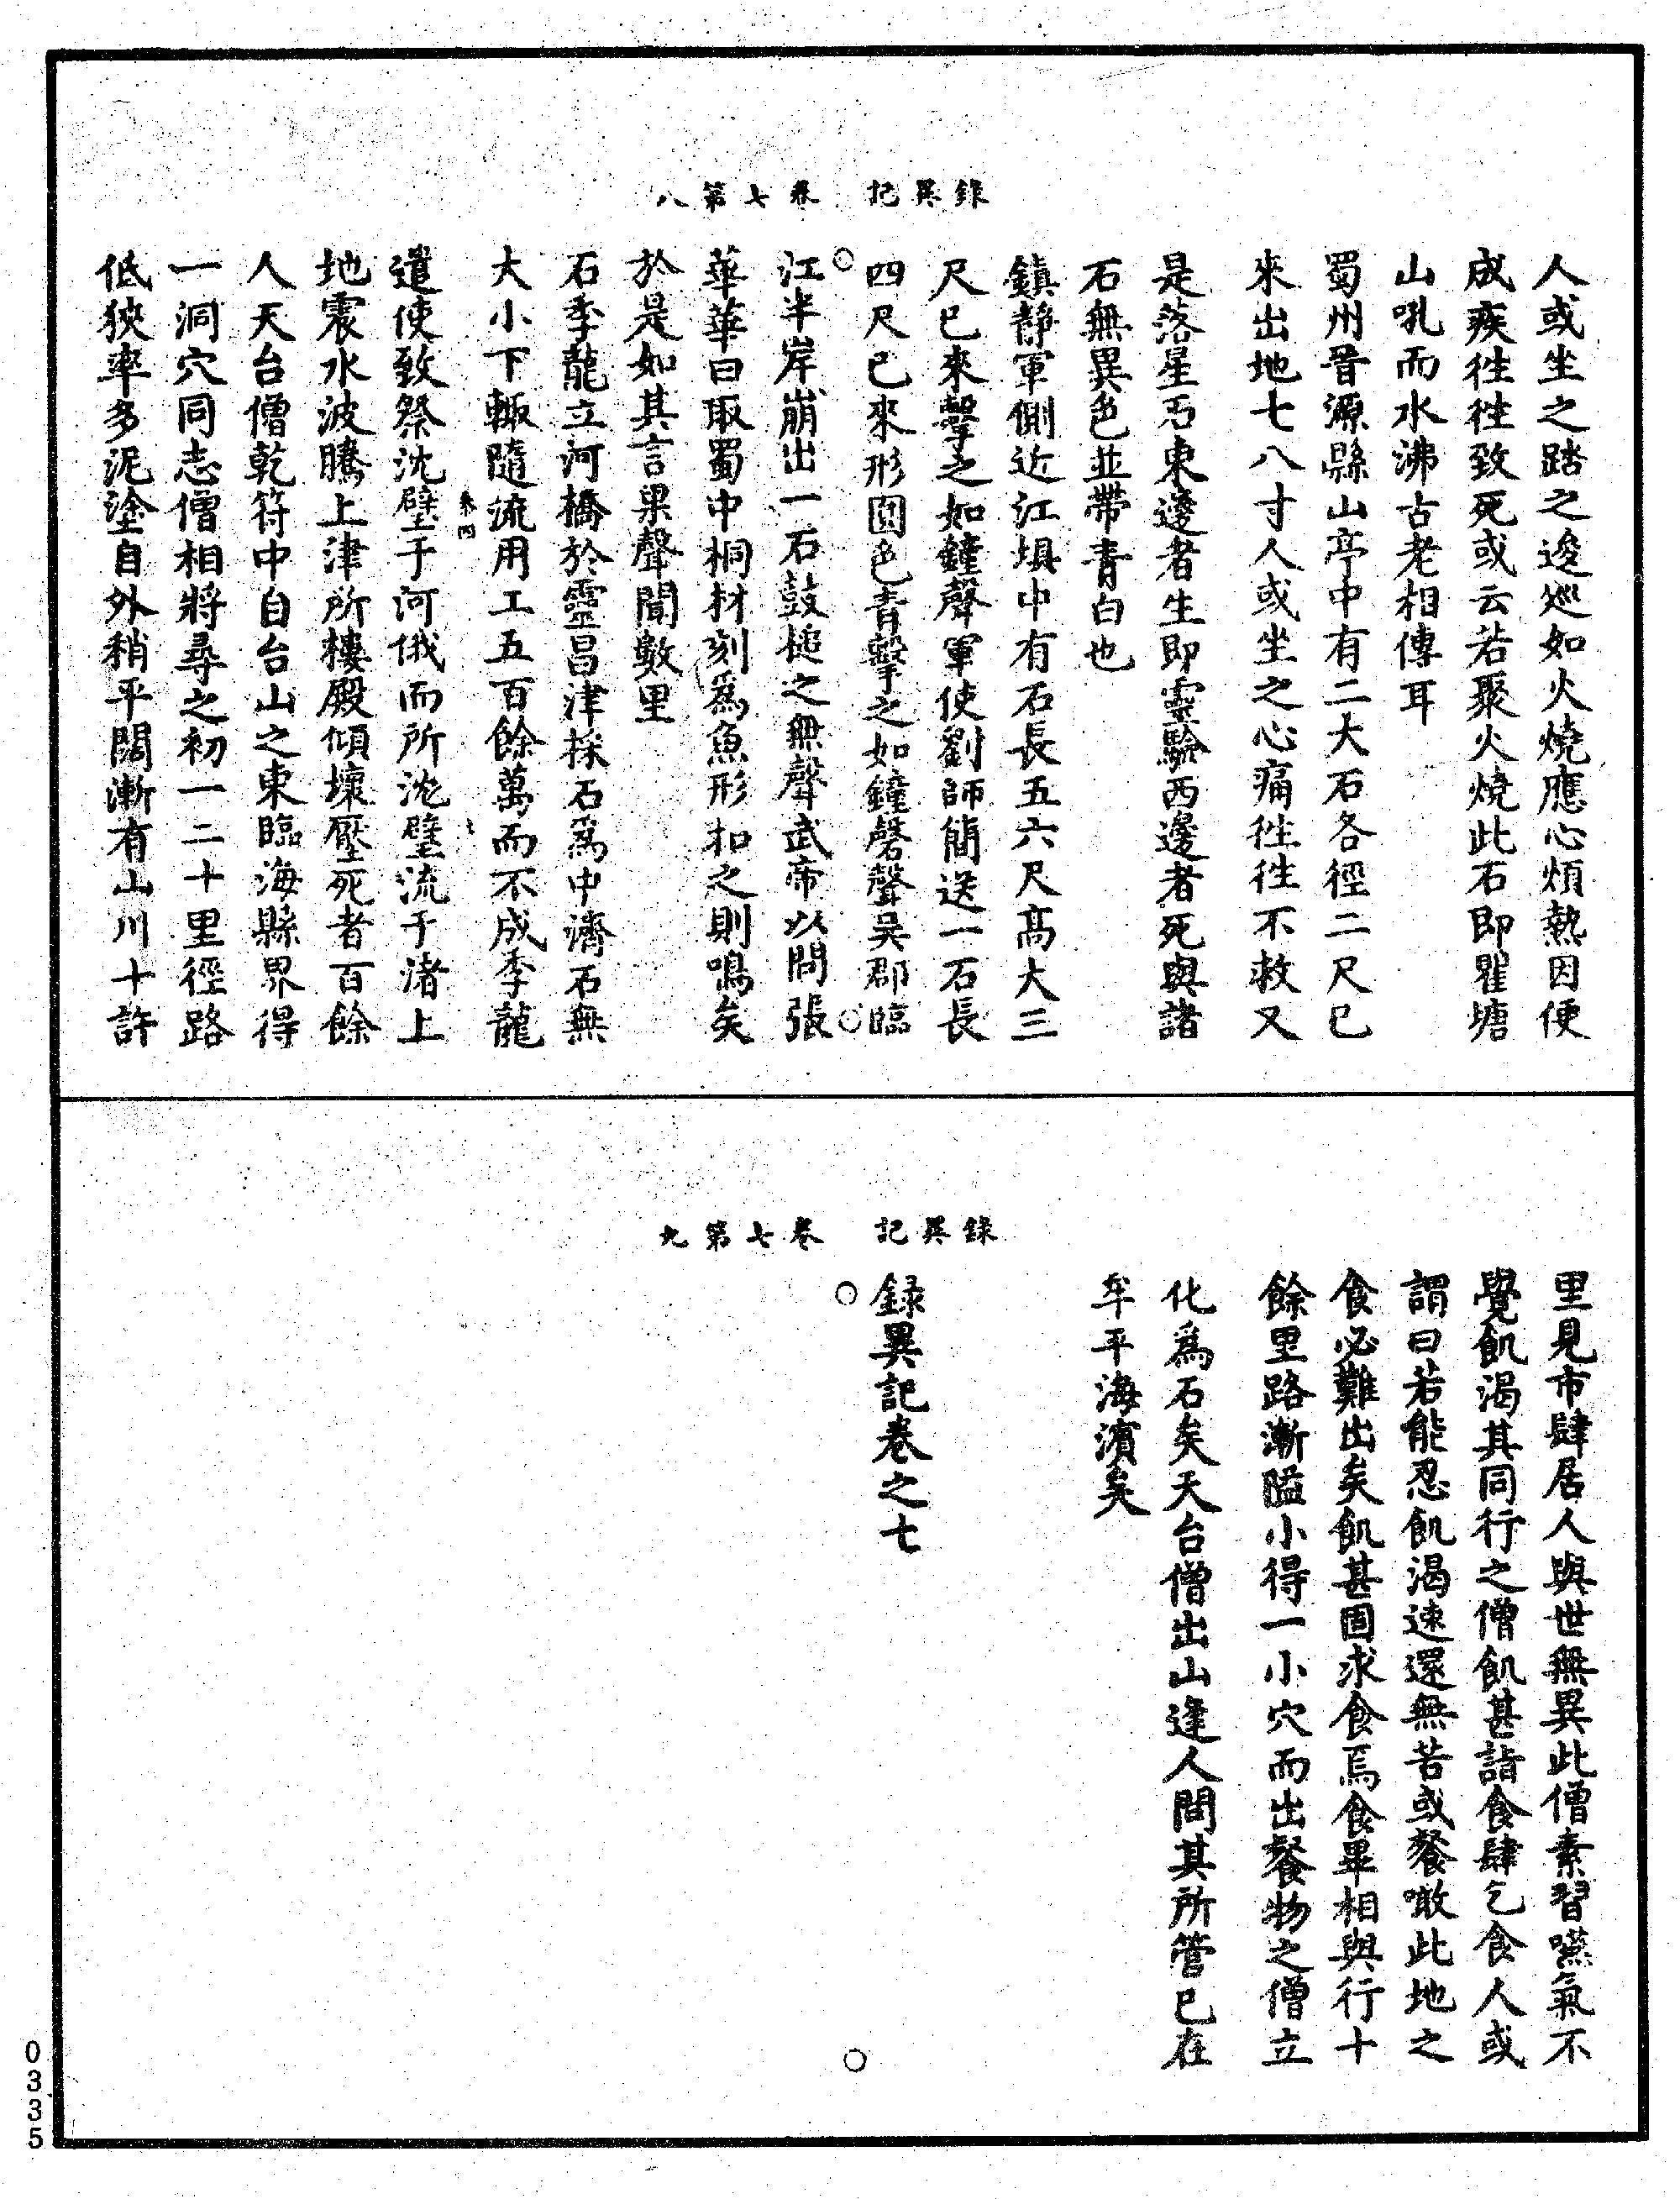 錄異記　卷七第八
人或坐之踏之逡巡如火燒應心煩熱因便
成疾徃徃致死或云若聚火燒此石即瞿塘
山吼而水沸古老相傳耳
蜀州晉源縣山亭中有二大石各徑二尺已
來出地七八寸人或坐之心痛徃徃不救又
是落星石東邊者生即靈驗西邊者死與諸
石無異色並帶青白也
鎮靜軍側近江堨中有石長五六尺髙大三
尺已來擊之如鐘聲軍使劉師簡送一石長
四尺已來形圓色青擊之如鐘磬聲吳郡臨
江半岸崩出一石鼓槌之無聲武帝以問張
華華曰取蜀中桐材刻爲魚形扣之則鳴矣
於是如其言果聲聞數里
石季龍立河橋於靈昌津採石爲中濟石無
大小下輙隨流用工五百餘萬而不成季龍
遣使致祭沈璧于河俄而所沈璧流于渚上
地震水波騰上津所樓殿傾壞壓死者百餘
人天台僧乾符中自台山之東臨海縣界得
一洞穴同志僧相將尋之初一二十里徑路
低狹率多泥塗自外稍平闊漸有山川十許
錄異記　卷七第九
里見市肆居人與世無異此僧素習嚥氣不
覺飢渴其同行之僧飢甚詣食肆乞食人或
謂曰若能忍飢渴速還無苦或餐噉此地之
食必難出矣飢甚固求食焉食畢相與行十
餘里路漸隘小得一小穴而出餐物之僧立
化爲石矣天台僧出山逢人問其所管已在
牟平海濱矣
録異記卷之七
0335